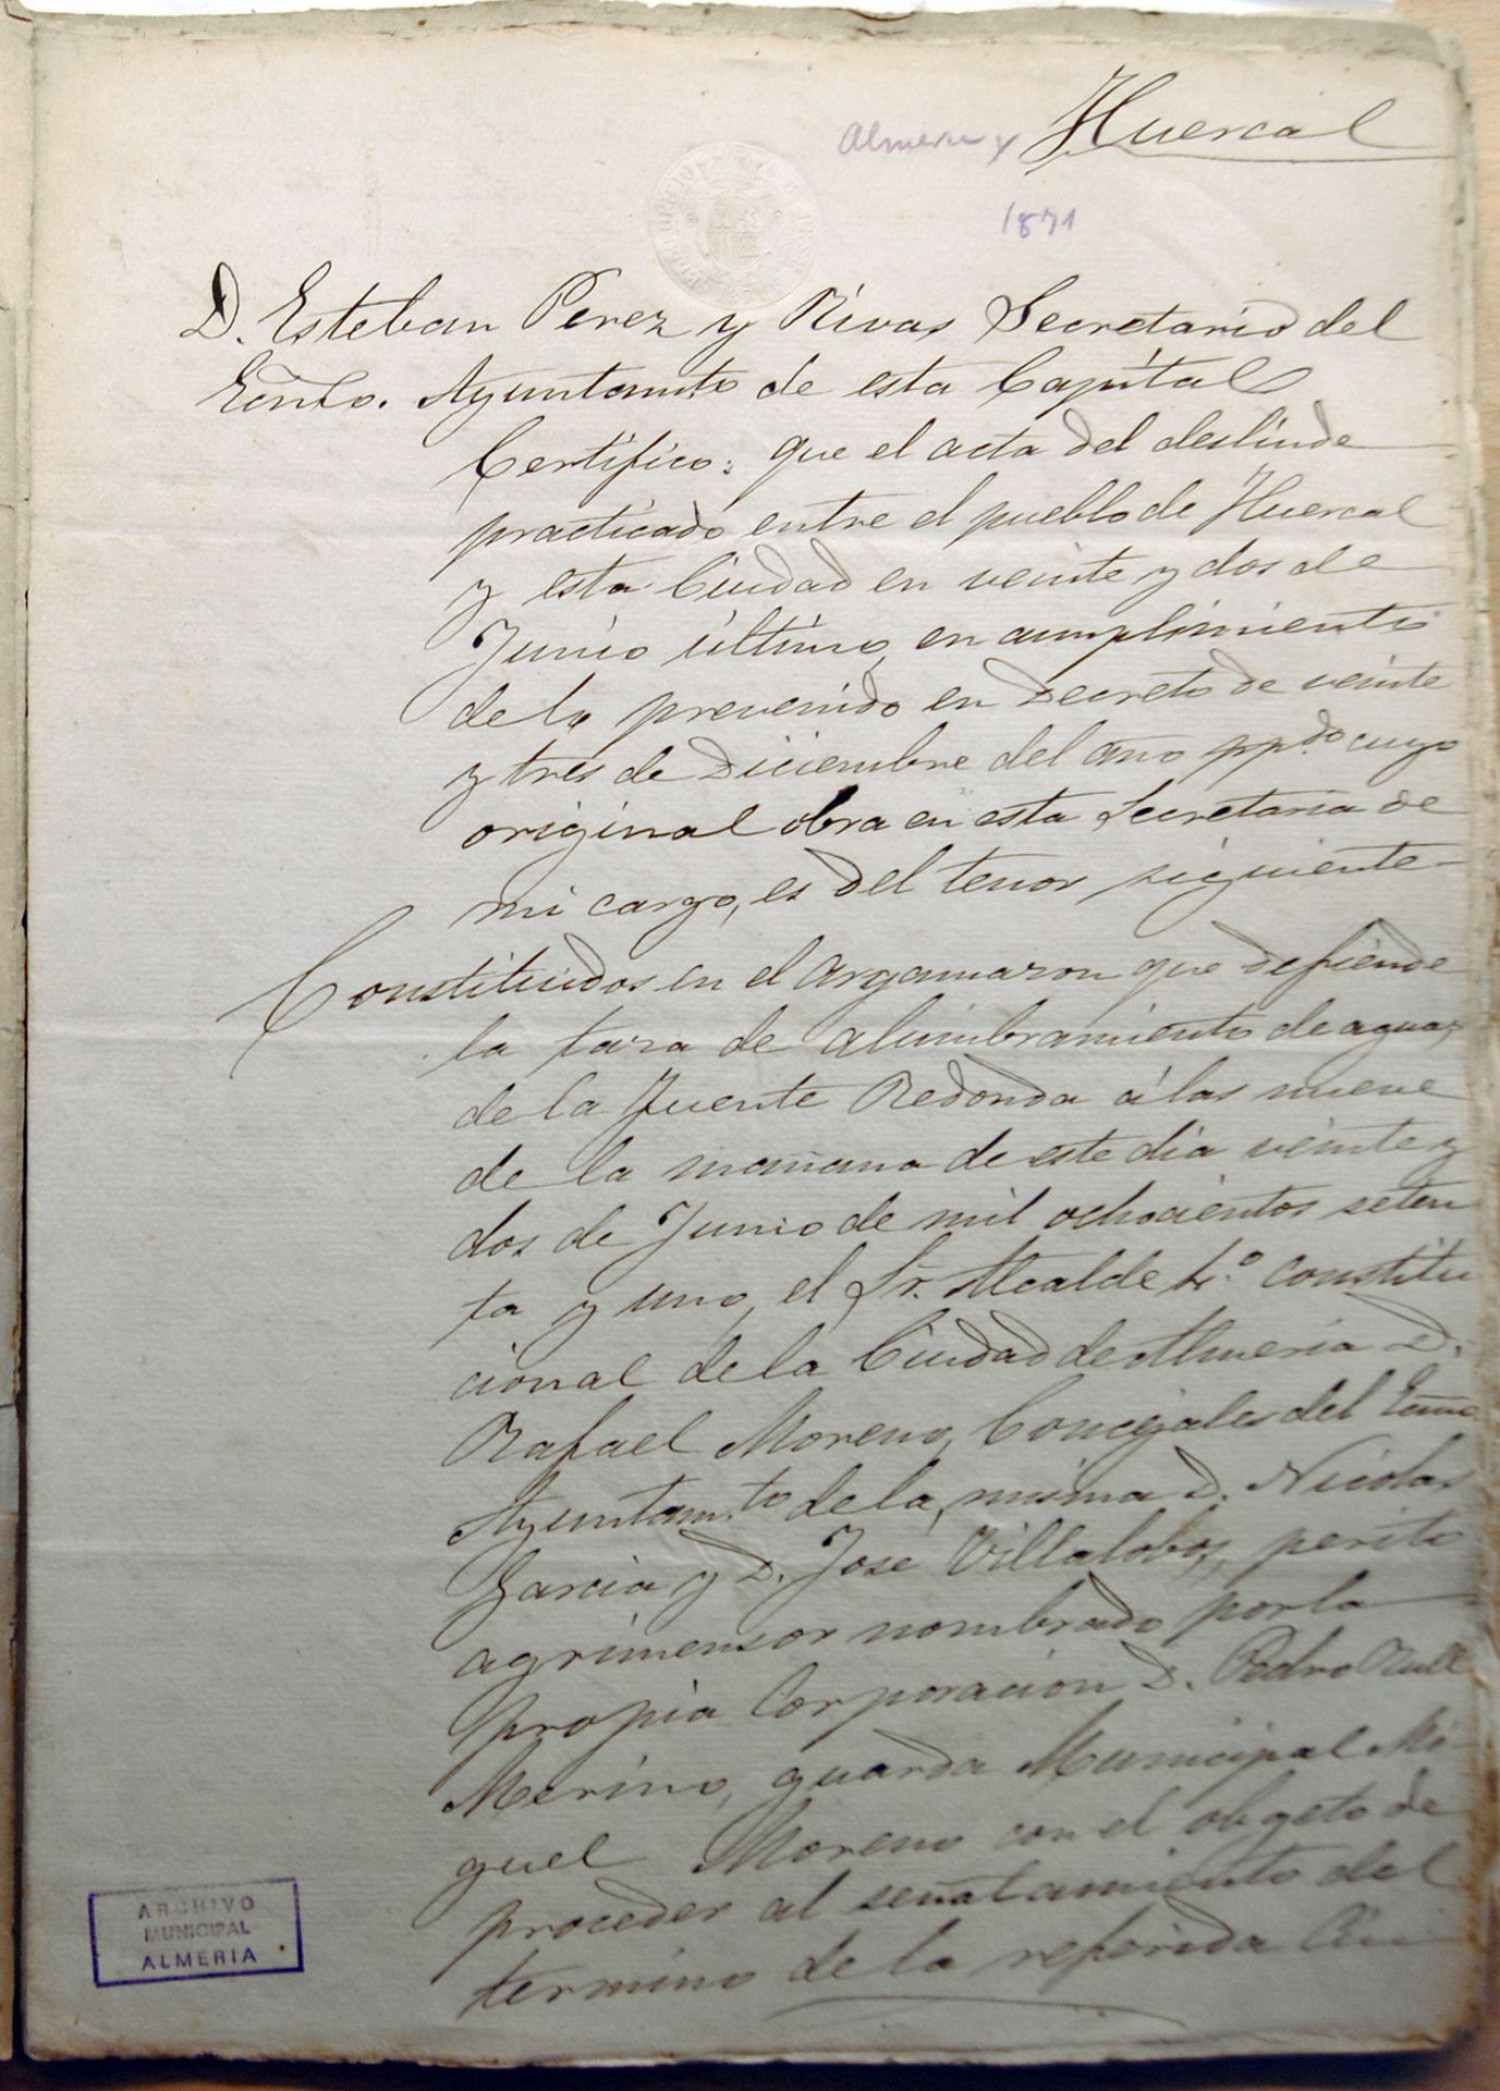 Almeria y Huercal
1871
D. Esteban Perez y Rivas Secretario del
Ayuntamto de esta Capital
Certifico: que el acta del deslinde
practicado entre el pueblo de Huercal
y esta Ciudad en veinte y dos de
Junio último, en cumplimiento
de lo prevenido en Decreto de veinte
y tres de Diciembre del año pp.do cuyo
original obra en esta Secretaria de
mi cargo, es del tenor siguiente
Constituidos en el argamazon que defiende
la taza de alumbramiento de aguas
de la Fuente Redonda á las nueve
de la mañana de este dia veinte y
dos de Junio de mil ochocientos seten
ta y uno, el Sr. Alcalde 4.º constitu
cional de la Ciudad de Almeria D.
Rafael Moreno, Concejales del Exmo
Ayuntam.to de la misma D. Nicolas
Garcia y D. José Villalobos, perito
agrimensor nombrado por la
propia Corporacion D. Pedro
Merino, guarda Municipal Mi-
guel Moreno con el objeto de
proceder al señalamiento del
termino de la referida Ciu
ARCHIVO
MUNICIPAL
ALMERIA